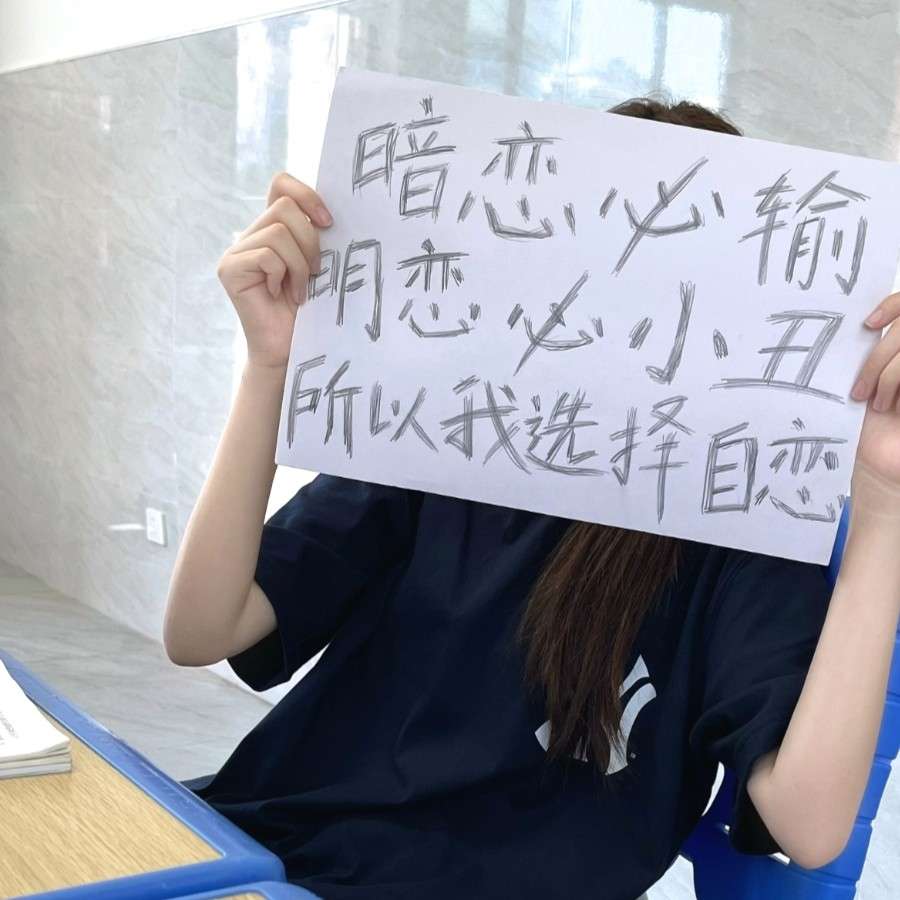 暗恋必输
明恋必小丑
所以我选择自恋